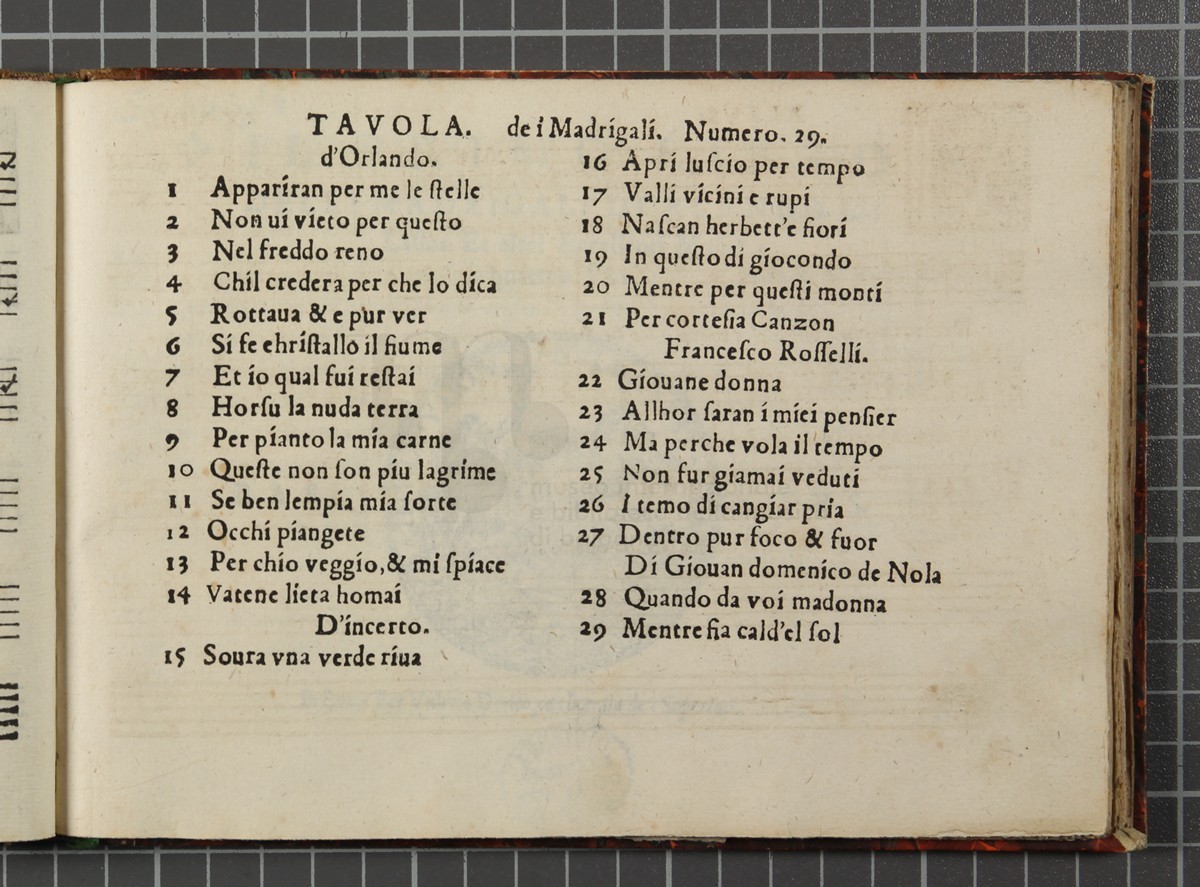 TAVOLA. de i Madrigali. Numero. 29.
d'Orlando.
1 Appariran per me le ſtelle
2 Non ui vieto per queſto
3 Nel freddo reno
4 Chil credera per che lo dica
5 Rottaua & e pur ver
6 Si fe ehriſtallo il fiume
7 Et io qual fui reſtai
8 Horſu la nuda terra
9 Per pianto la mia carne
10 Queſte non ſon piu lagrime
11 Se ben lempia mia ſorte
12 Occhi piangete
13 Per chio veggio,& mi ſpiace
14 Vatene lieta homai
D'incerto.
15 Soura vna verde riua
16 Apri luſcio per tempo
17 Valli vicini e rupi
18 Naſcan herbett'e fiori
19 In queſto di giocondo
20 Mentre per queſti monti
21 Per corteſia Canzon
Franceſco Roſſelli.
22 Giouane donna
23 Allhor ſaran i miei penſier
24 Ma perche vola il tempo
25 Non fur giamai veduti
26 I temo di cangiar pria
27 Dentro pur foco & fuor
Di Giouan domenico de Nola
28 Quando da voi madonna
29 Mentre fia cald'el ſol